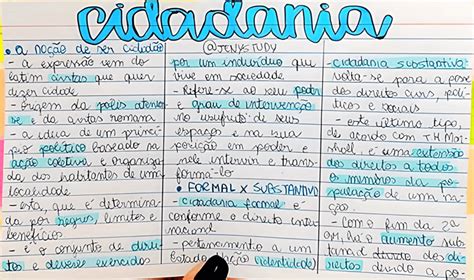 cidadania
• a noção de ser cidadão
- a expressão vem do
latim civitas que quer
dizer cidade
- origem da poles atenien-
se e da civitas romana
- a ideia de um princí-
pio político baseado na
ação coletiva e organiza-
da dos habitantes de uma
localidade
- esta, que é determina-
da por regras, limites e
benefícios
- é o conjunto de direi-
tos e deveres exercidos
@JENYSTUDY
por um indivíduo que
vive em sociedade
- refere-se ao seu poder
e grau de intervenção
no usufruto de seus
espaços e na sua
posição em poder e
nele intervir e trans-
formá-lo
• FORMAL X SUBSTANTIVO
- cidadania formal é
conforme o direito inter-
nacional
- pertencimento a um
Estado nação (identidade)
- cidadania substantiva
volta-se para a posse
dos direitos civis, polí-
ticos e sociais
- este último tipo,
de acordo com TH Mar-
shall, é uma extensão
dos direitos a todos
os membros da po-
pulação de uma na-
ção.
- com o fim da 2ª
GM, houve aumento subs-
tancial dos di-
reitos